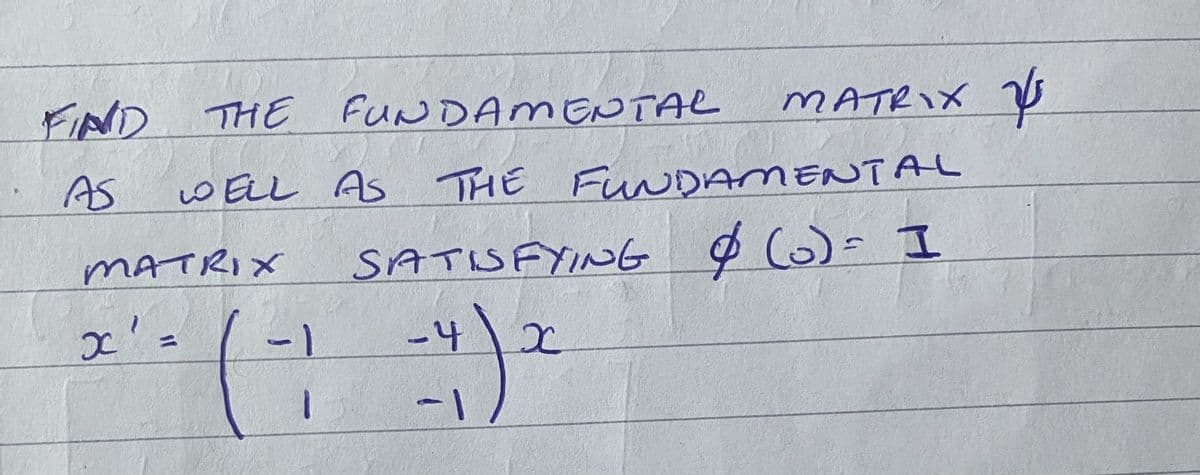 FIND THE FUNDAMENTAL MATRIX ψ
AS WELL AS THE FUNDAMENTAL
MATRIX SATISFYING φ(0) = I
x' = ( -1 -4 ) x
1 -1